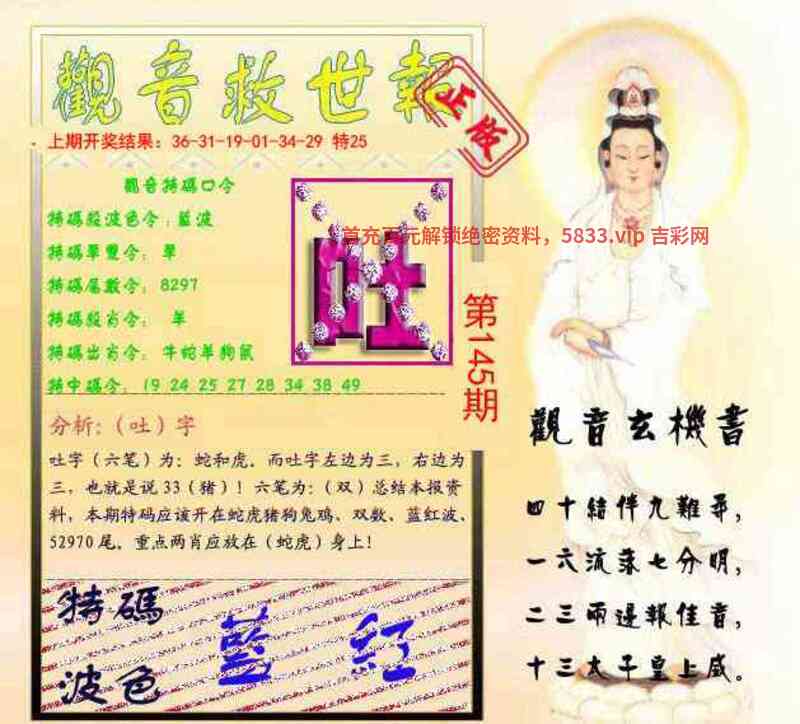 觀音救世報
正版
上期开奖结果：36-31-19-01-34-29 特25
觀音特碼口令
特碼殺波色令：藍波
特碼單雙令： 單
特碼尾數令：8297
特碼殺肖令： 羊
特碼出肖令： 牛蛇羊狗鼠
特中碼令：19 24 25 27 28 34 38 49
吐
首充百元解锁绝密资料，5833.vip 吉彩网
第145期
分析：（吐）字
吐字（六笔）为：蛇和虎。而吐字左边为三，右边为
三，也就是说33（猪）！六笔为：（双）总结本报资
料，本期特码应该开在蛇虎猪狗兔鸡、双数、蓝红波、
52970尾。重点两肖应放在（蛇虎）身上！
特碼
波色
藍 紅
觀音玄機書
四十結伴九難尋，
一六流落七分明，
二三兩邊報佳音，
十三太子皇上威。